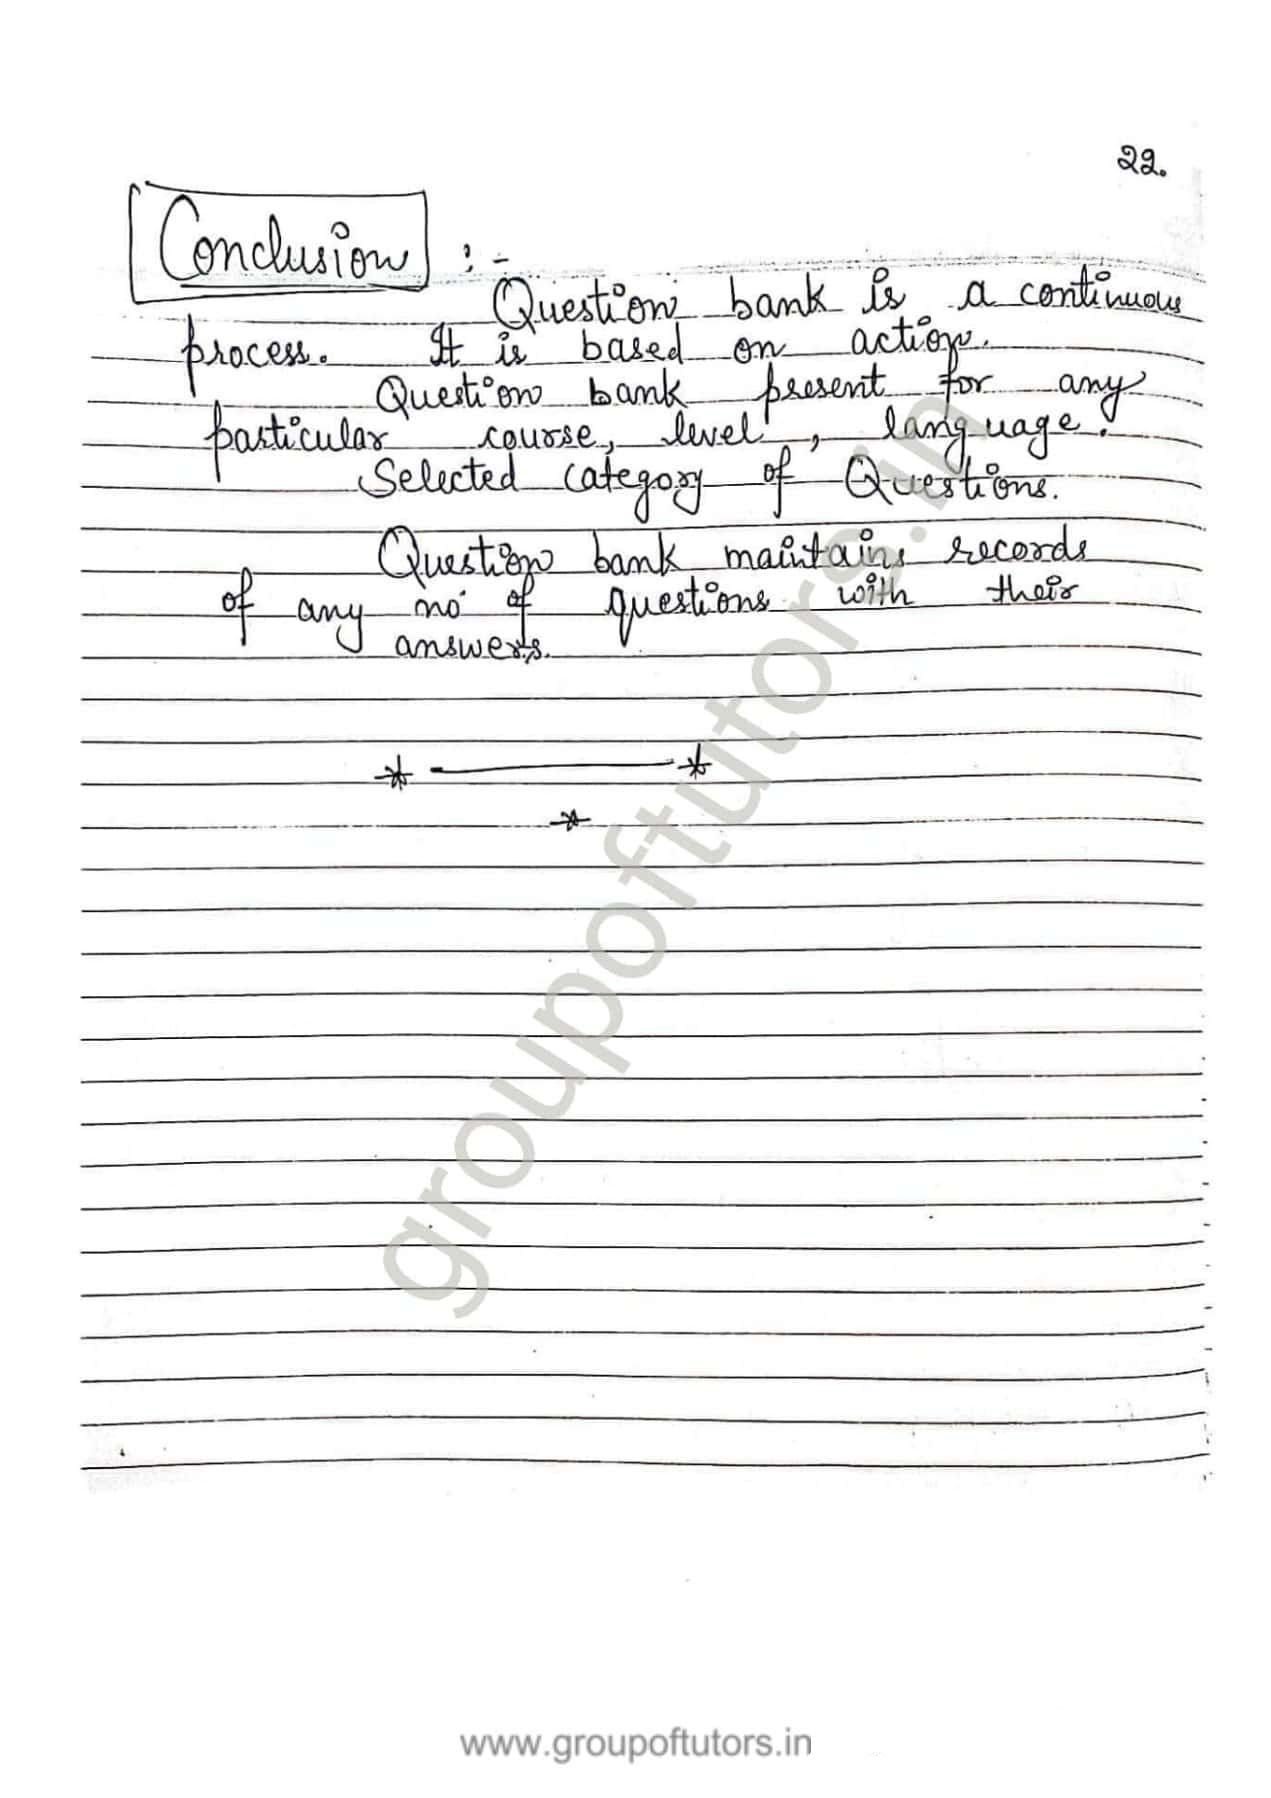 22.
Conclusion :-
Question bank is a continuous
process. It is based on action.
Question bank present for any
particular course, level, language.
Selected category of Questions.
Question bank maintains records
of any no of questions with their
answers.
groupoftutors.in
www.groupoftutors.in